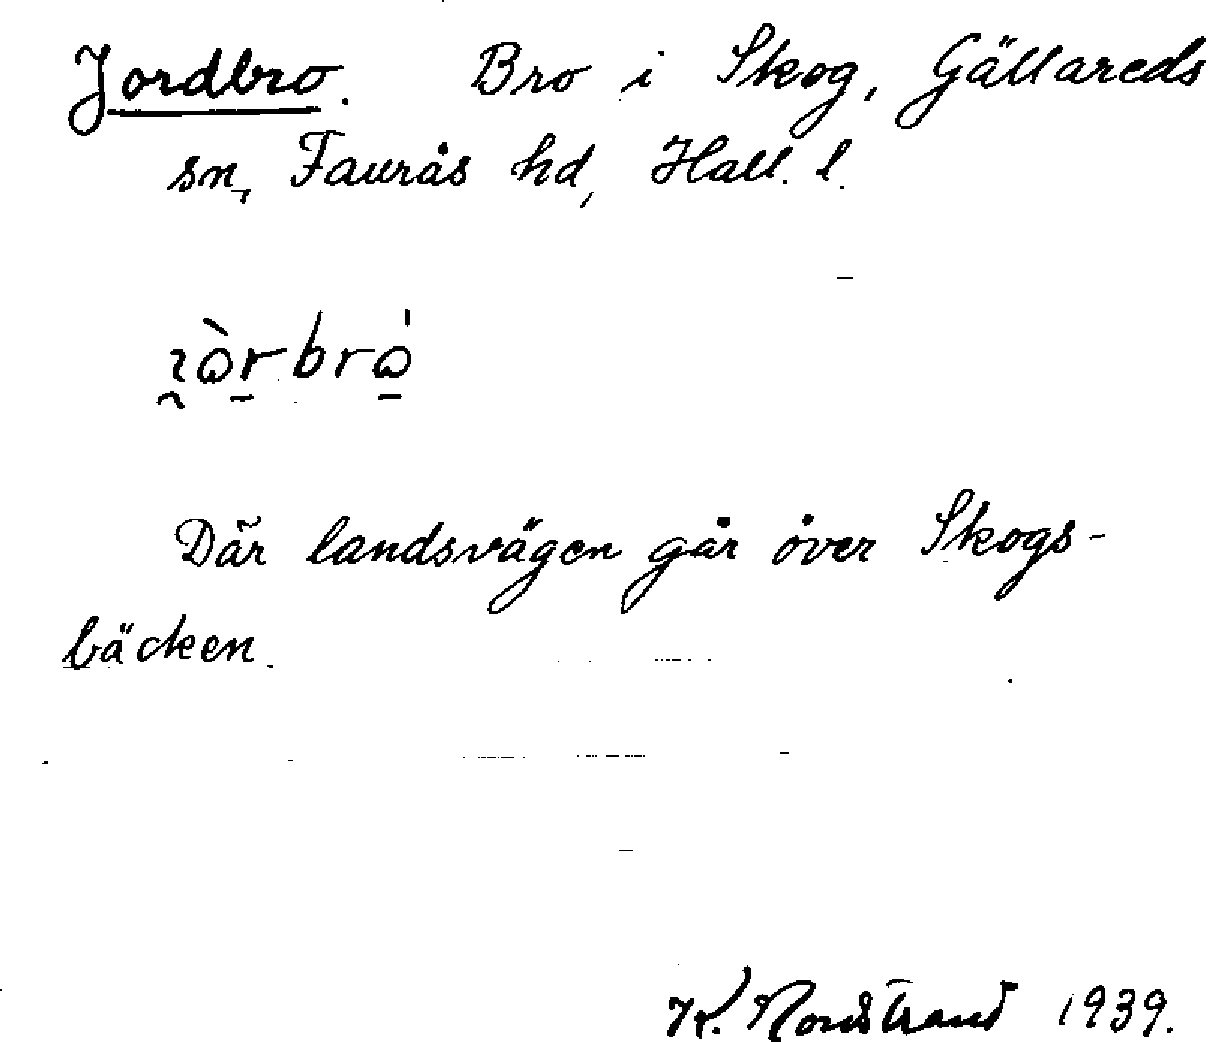 Jordbro. Bro i Skog, Gällareds
sn, Faurås hd, Hall. l.
Där landsvägen går över Skogs-
bäcken.
K. Nordstrand 1939.